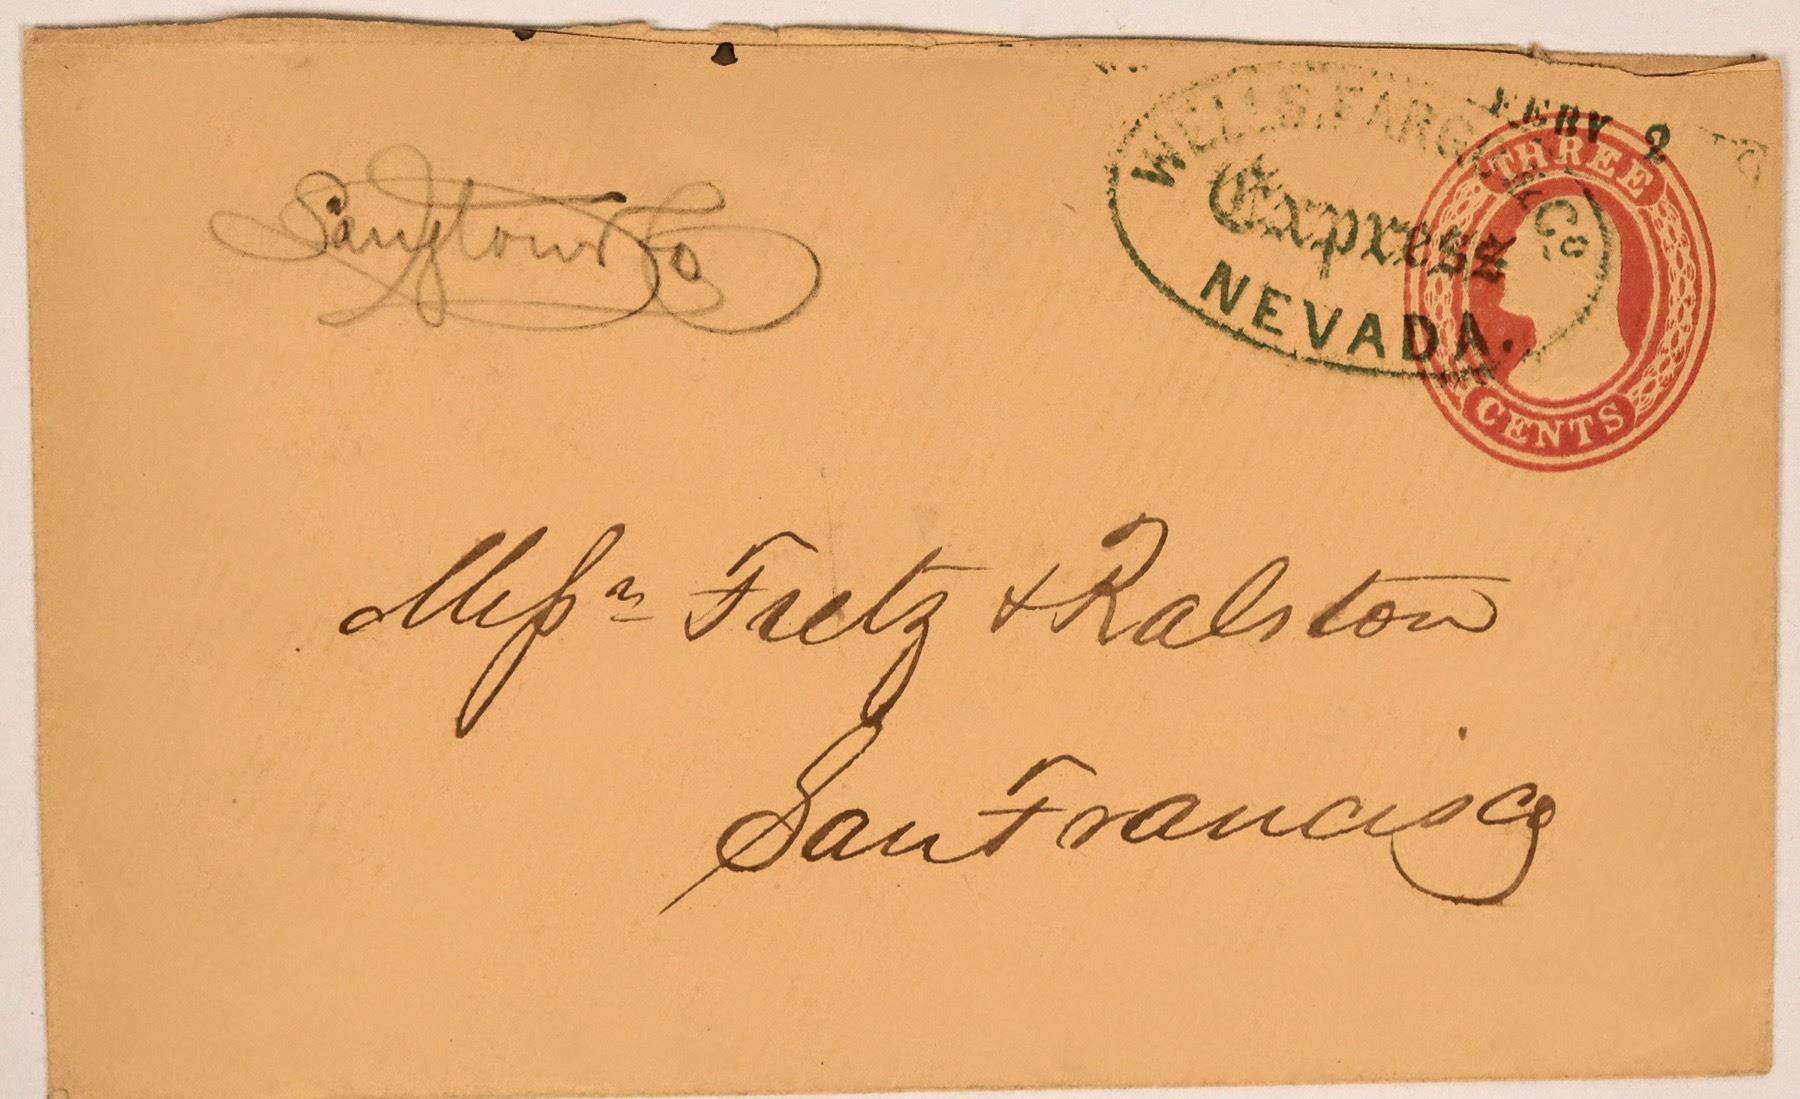 WELLS, FARGO & Co.
Express
NEVADA.
FEBY 2
THREE
CENTS
Langton's Co
Messrs Fretz & Ralston
San Francisco